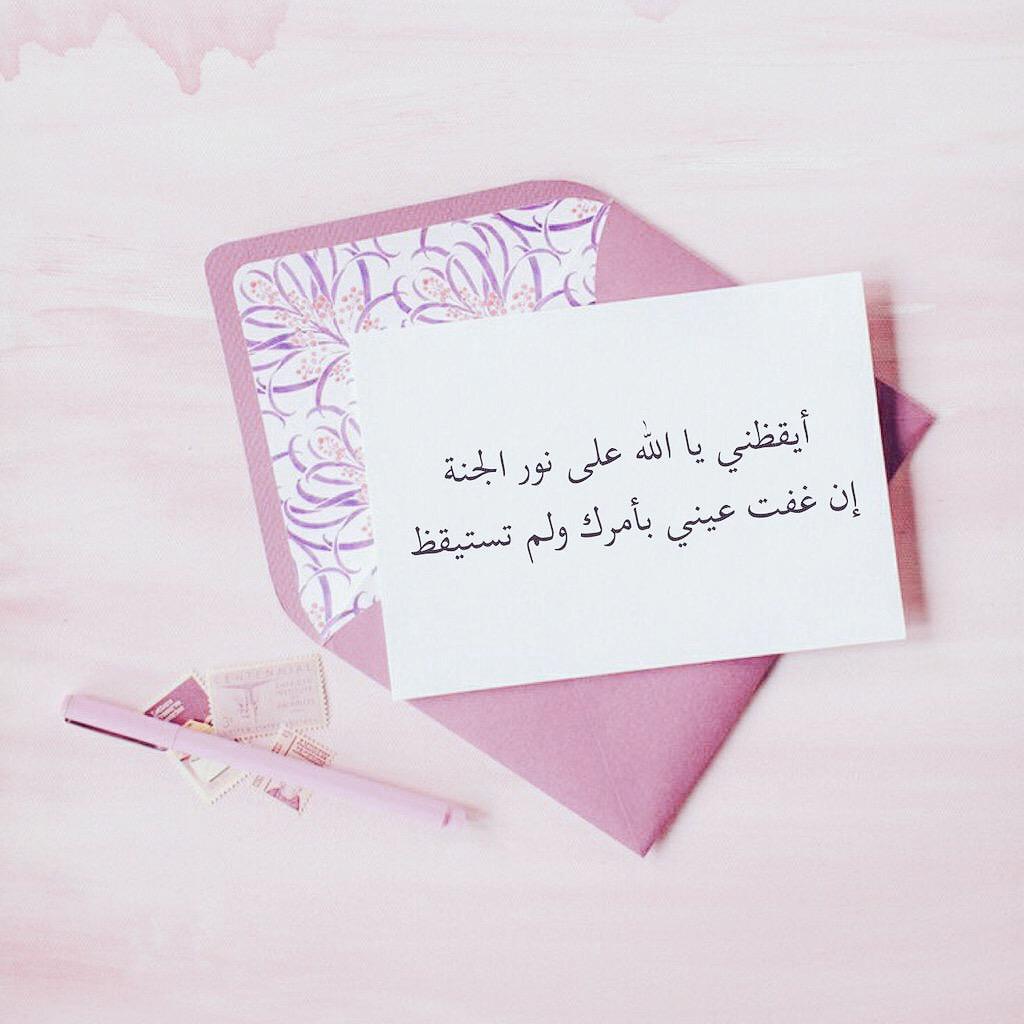 أيقظني يا الله على نور الجنة
إن غفت عيني بأمرك ولم تستيقظ
CENTENNIAL